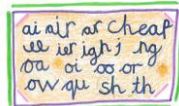 ai air ar Cheap
ee ier igh j ng
oa oi oo or
ow qu sh th